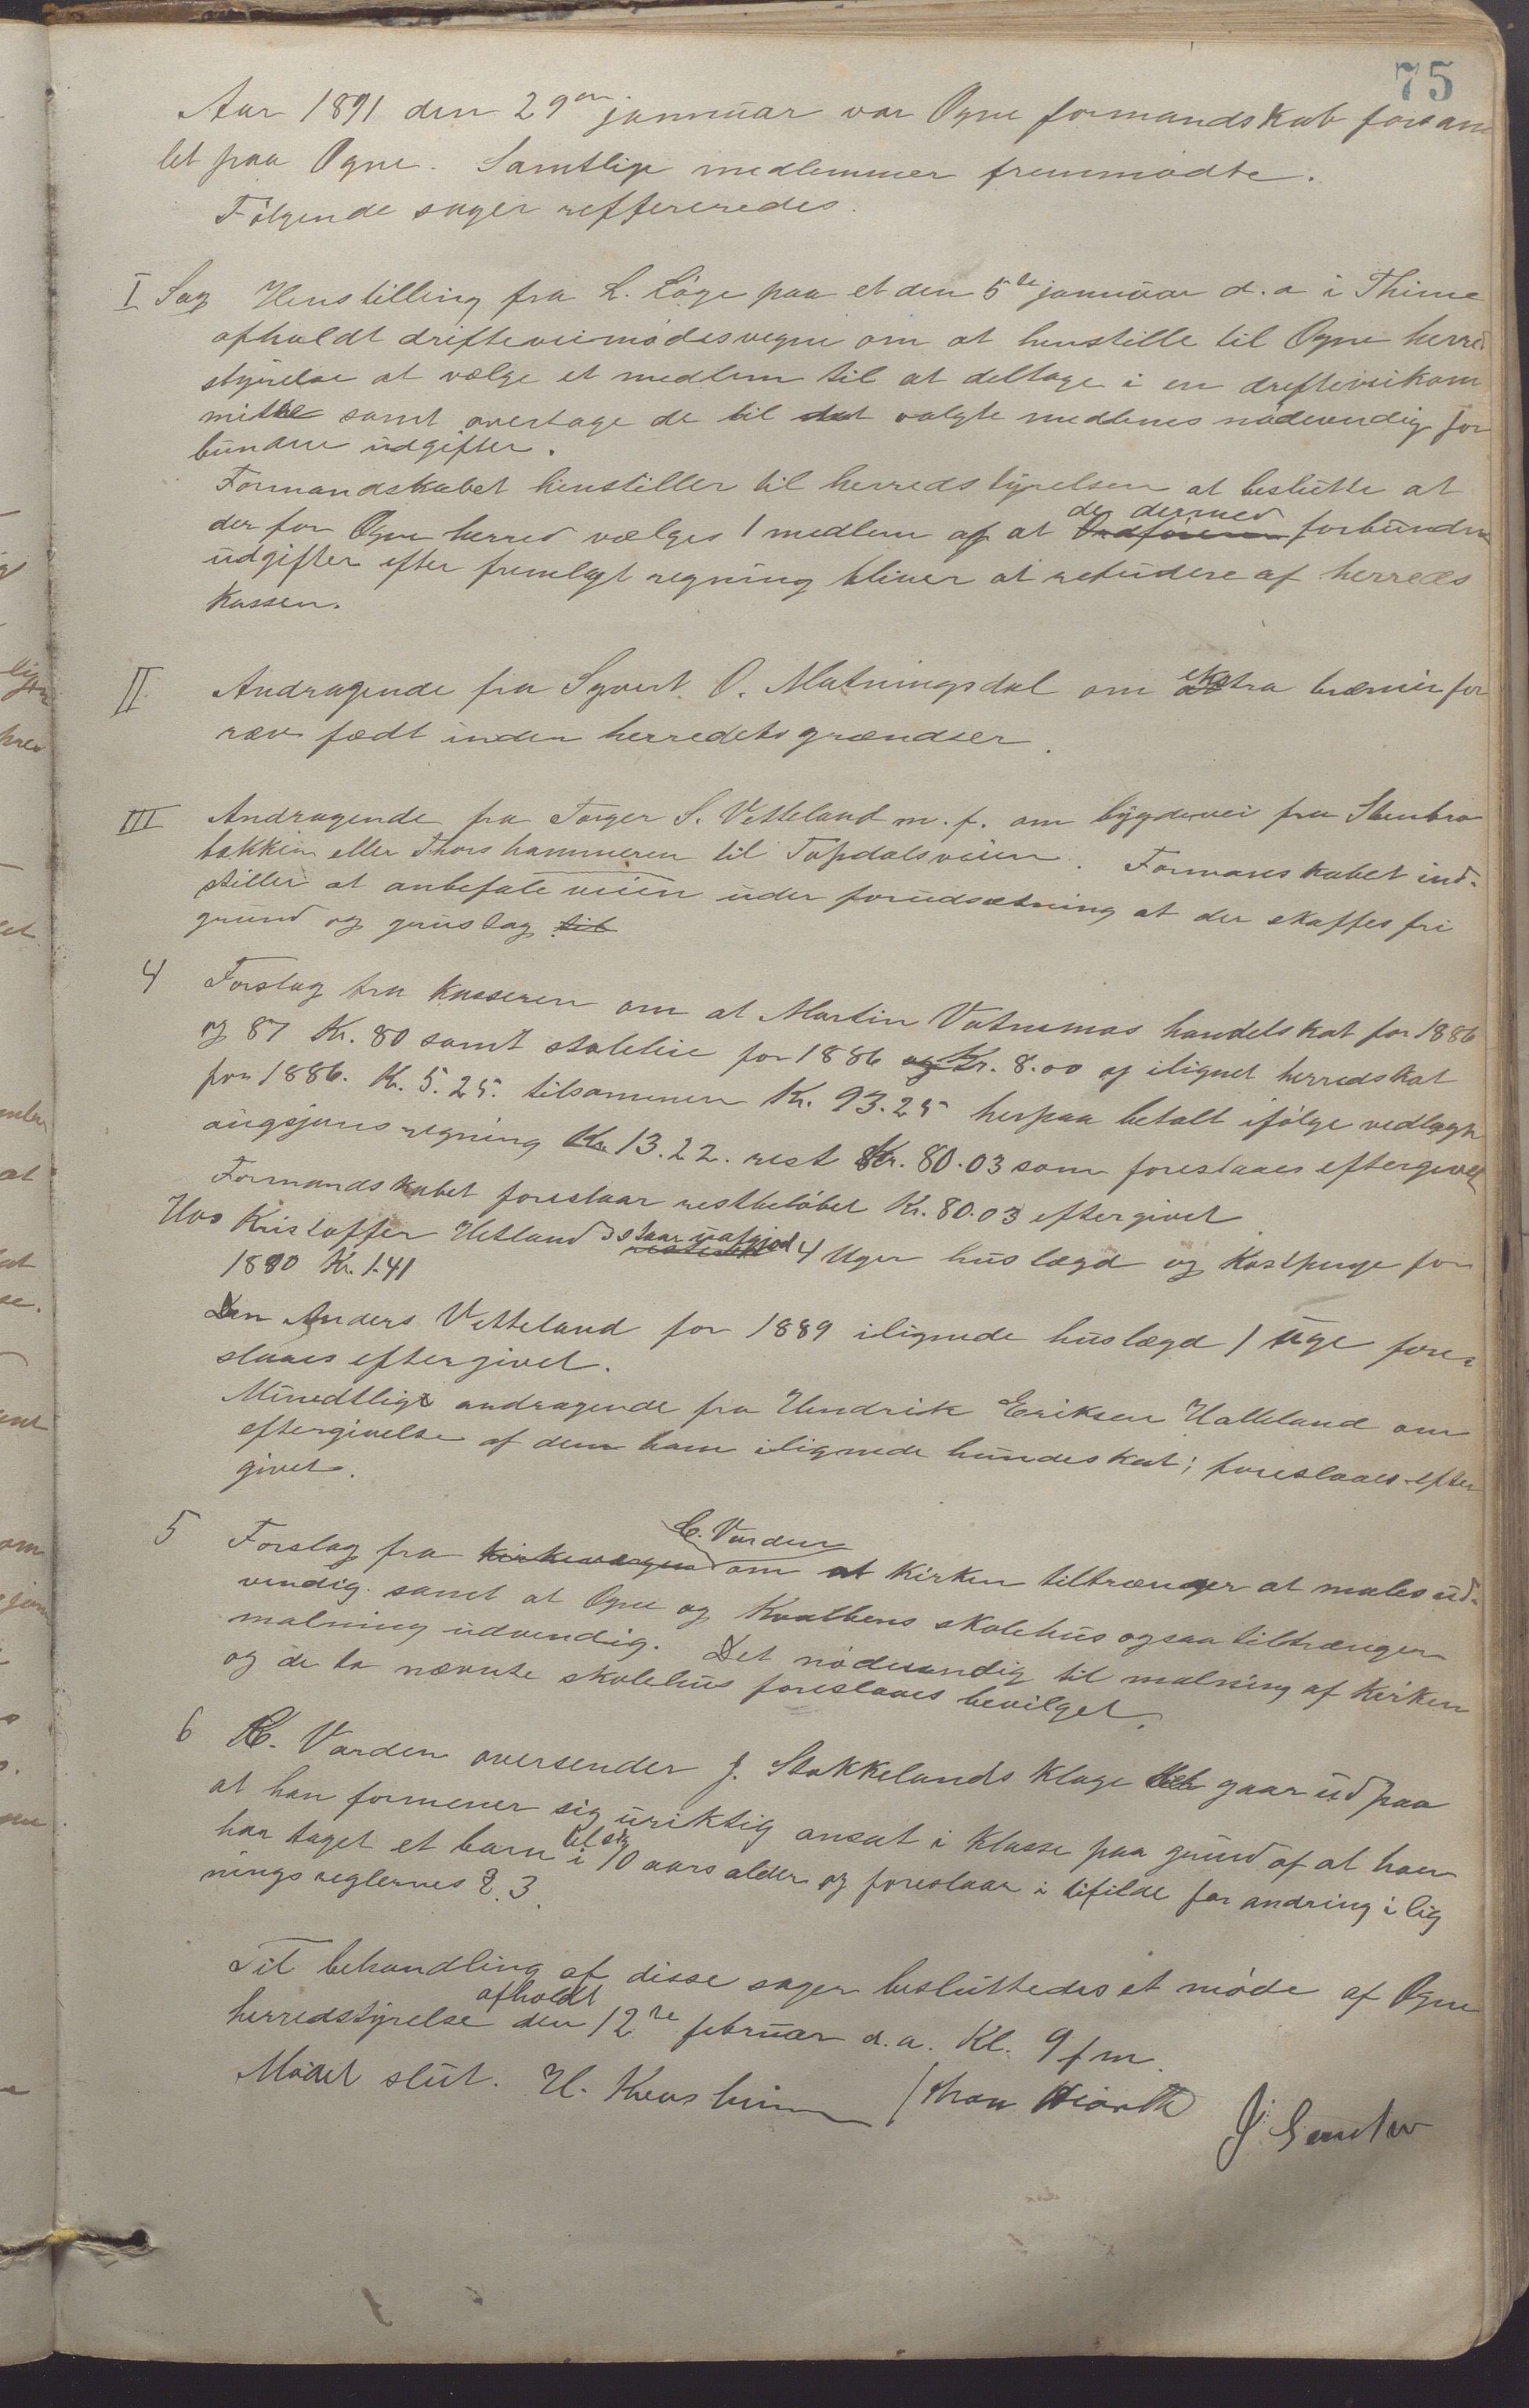 75
Aar 1891 den 29en januar var Ogne formandskab forsam
let paa Ogne. Samtlige medlemmer fremmødte.
Følgende sager reffereredes.
I Sag Henstilling fra L. Löge paa et den 5te januar d.a i Thime
afholdt drifteveimødesvegne om at henstille til Ogne herreds
styrelse at vælge et medlem til at deltage i en drifteveikom
mitte samt overtage de til det valgte medlems nødvendig for
bundne udgifter.
Formandskabet henstiller til herredstyrelsen at beslutte at
der for Ogne herred vælges 1 medlem og at de dermed forbundne
udgifter efter fremlagt regning bliver at refudere af herreds
kassen.
II Andragende fra Syvert O. Matningsdal om ekstra præmie for
ræv født inden herredets grændser.
III Andragende fra Torger S. Vetteland m.f. om bygdevei fra Stenbro
bakkin eller Thorshammeren til Tapdalsveien. Formanskabet ind-
stiller at anbefale veien under forudsætning at der skaffes fri
grund og grustag til
4 Forslag fra kasseren om at Martin Vatnemos handelskat for 1886
og 87 Kr. 80 samt stableie for 1886 Kr. 8.00 og ilignet herredskat
for 1886. Kr. 5.25. tilsammen Kr. 93.25 herpaa betalt ifølge vedlagte
augsjonsregning Kr. 13.22. rest Kr. 80.03 som foreslaaes eftergivet
Formandskabet foreslaar restbeløbet Kr. 80.03 eftergivet
Hos Kristoffer Hetland staar uafgjort 4 Uger huslægd og Kostpenge for
1890 Kr. 1.41
Den Anders Vetteland for 1889 ilignede huslægd 1 uge fore-
slaaes eftergivet.
Mundtligt andragende fra Hendrik Eriksen Halleland om
eftergivelse af dem ham ilignede hundeskat; foreslaaes efter
givet.
5 Forslag fra kirkeværgen E. Varden om at kirken tiltrænger at males ud-
vendig samt at Ogne og Kvalbens skolehus ogsaa tiltrænger
malning udvendig. Det nødvendig til malning af kirken
og de to nævnte skolehus foreslaaes bevilget.
6 E. Varden oversender J. Stokkelands klage gaar ud paa
at han formener sig uriktig ansat i klasse paa grund af at han
har taget et barn til sig i 10 aars alder og foreslaar i tifilde for andring i lig
ningsreglernes § 3.
Til behandling af disse sager besluttedes et møde af Ogne
herredstyrelse afholdt den 12te februar d.a. Kl. 9 fm.
Mødet slut. H. Kverheim Thon Hiorth